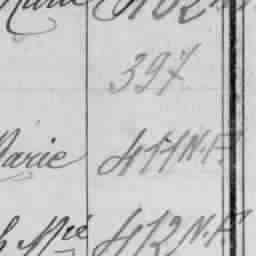 397
Marie 411 N.F.
h Mié 412 N.F.